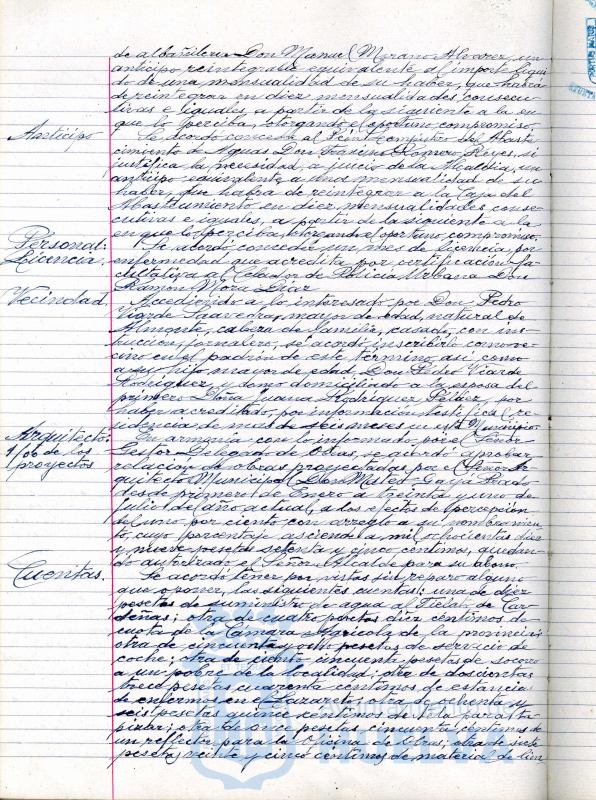 de albañilería Don Manuel Morano Alvarez, un
anticipo reintegrable equivalente al importe liqui-
do de una mensualidad de su haber, que habrá
de reintegrar en diez mensualidades consecu-
tivas e iguales a partir de la siguiente a la en
que lo perciba, otorgando el oportuno compromiso.
Anticipo
Se acordó conceder al Peón Limpiador del Abaste-
cimiento de Aguas Don Francisco Romero Reyes, si
justifica la necesidad, a juicio de la Alcaldía, un
anticipo equivalente a una mensualidad de su
haber, que habrá de reintegrar a la Caja del
Abastecimiento en diez mensualidades conse-
cutivas e iguales, a partir de la siguiente a la
en que lo perciba, otorgando el oportuno compromiso.
Personal:
Licencia.
Se acordó conceder un mes de licencia, por
enfermedad que acredita por certificación fa-
cultativa al Celador de Policía Urbana Don
Ramón Mora Díaz
Vecindad
Accediendo a lo interesado por Don Pedro
Saavedra, mayor de edad, natural de
Almonte, cabeza de familia, casado, con ins-
trucción, jornalero, se acordó inscribirle como ve-
cino en el padrón de este término, así como
a su hijo mayor de edad, Don Pedro
Rodríguez, y como domiciliado a la esposa del
primero Doña Juana Rodríguez Peláez, por
haber acreditado, por información testifical re-
sidencia de mas de seis meses en este Municipio.
Arquitecto:
1/00 de los
proyectos
En armonía con lo informado, por el Señor
Gestor Delegado de Obras, se acordó aprobar
relación de obras proyectadas por el Señor Ar-
quitecto Municipal Don Mateo Gayá Prado
desde primero de Enero a treinta y uno de
Julio del año actual, a los efectos de percepción
del uno por ciento con arreglo a su nombramien-
to, cuyo porcentaje asciende a mil ochocientas diez
y nueve pesetas setenta y cinco céntimos, quedan-
do autorizado el Señor Alcalde para su abono.
Cuentas.
Se acordó tener por vistas sin reparo alguno
que oponer, las siguientes cuentas: una de diez
pesetas de suministro de agua al Fielato de Car-
deñas; otra de cuatro pesetas diez céntimos de
cuota de la Cámara Agrícola de la provincia;
otra de cincuenta y ocho pesetas de servicio de
coche; otra de ciento cincuenta pesetas de socorro
a un pobre de la localidad; otra de doscientas
trece pesetas cuarenta céntimos de estancias
de enfermos en Lazareto; otra de ochenta y
seis pesetas quince céntimos de tela para
otra de once pesetas cincuenta céntimos de
un reflector para la Oficina de Obras; otra de siete
pesetas veinte y cinco céntimos de material de lim